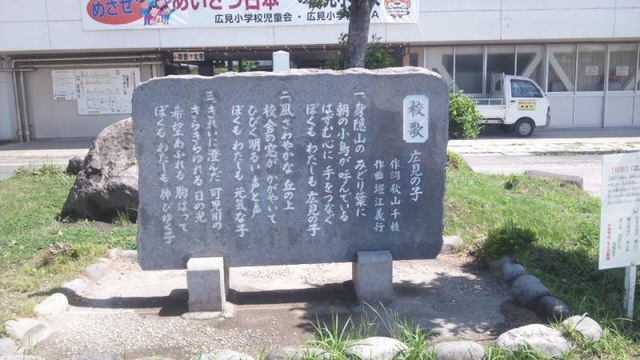 めざせ あいさつ日本一
広見小学校児童会・広見小
校歌
広見の子
作詞 秋山千枝
作曲 堀江義行
一 身隠山の みどり葉に
朝の小鳥が 呼んでいる
はずむ心に 手をつなぐ
ぼくも わたしも 広見の子
二 風さわやかな 丘の上
校舎の窓が かがやいて
ひびく明るい 声と声
ぼくも わたしも 元気な子
三 きれいに澄んだ 可児川の
きらきらゆれる 日の光
希望あふれる 胸はって
ぼくも わたしも 伸びゆく子